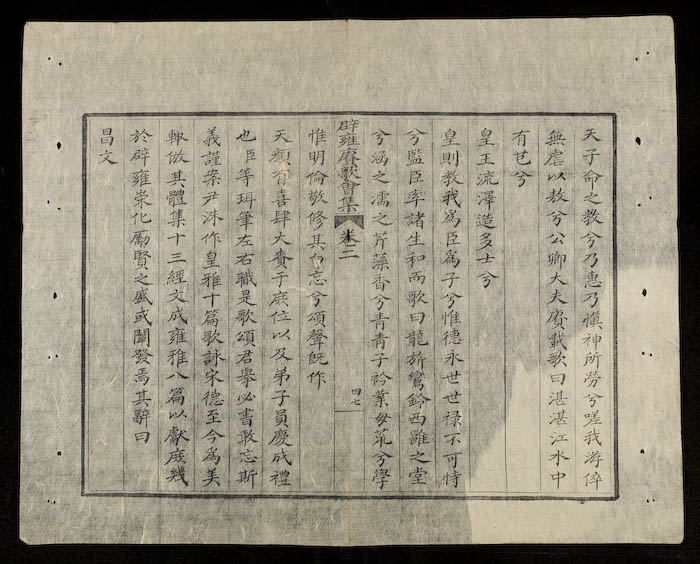 天子命之教兮乃惠乃慎神所勞兮嗟我游倅
無虐以敖兮公卿大夫賡載歌曰湛湛江水中
有芑兮
皇王流澤造多士兮
皇則教我為臣為子兮惟德永世世祿不可恃
兮監臣率諸生和而歌曰龍旂鸞鈴西雝之堂
兮涵之濡之芹藻香兮青青子衿業毋荒兮學
辟雍賡歌會集 卷二 四七
惟明倫敬修其勿忘兮頌聲旣作
天顏有喜肆大賚于庶位以及弟子員慶成禮
也臣等珥筆左右職是歌頌君舉必書敢忘斯
義謹案尹洙作皇雅十篇歌詠宋德至今為美
輙倣其體集十三經文成雍雅八篇以獻庶幾
於辟雍崇化勵賢之盛或闡發焉其辭曰
昌文